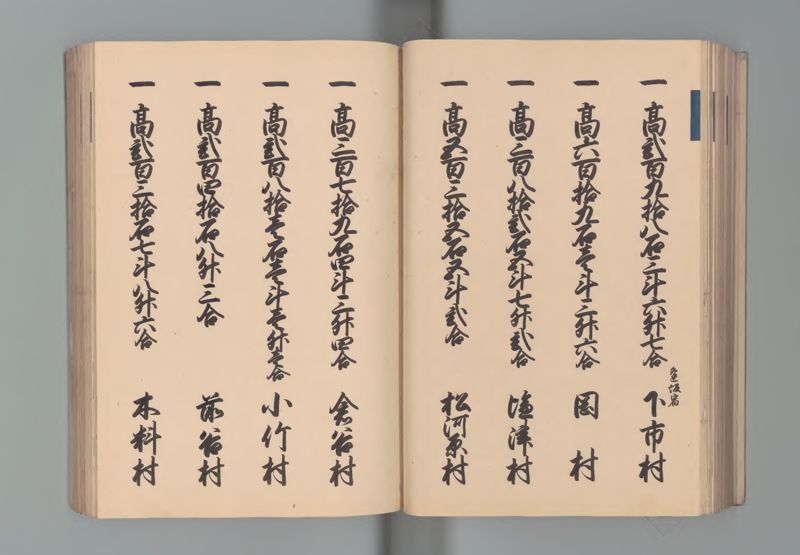 一 高弐百九拾八石三斗六升七合 下市村
一 高六百拾九石壱斗三升六合 岡村
一 高三百八拾弐石五斗七升弐合 塩津村
一 高五百三拾五石五斗弐合 松河原村
一 高三百七拾九石四斗三升四合 倉谷村
一 高弐百八拾壱石壱斗壱升壱合 小竹村
一 高弐百四拾石八升三合 前谷村
一 高弐百三拾石七斗八升六合 木料村